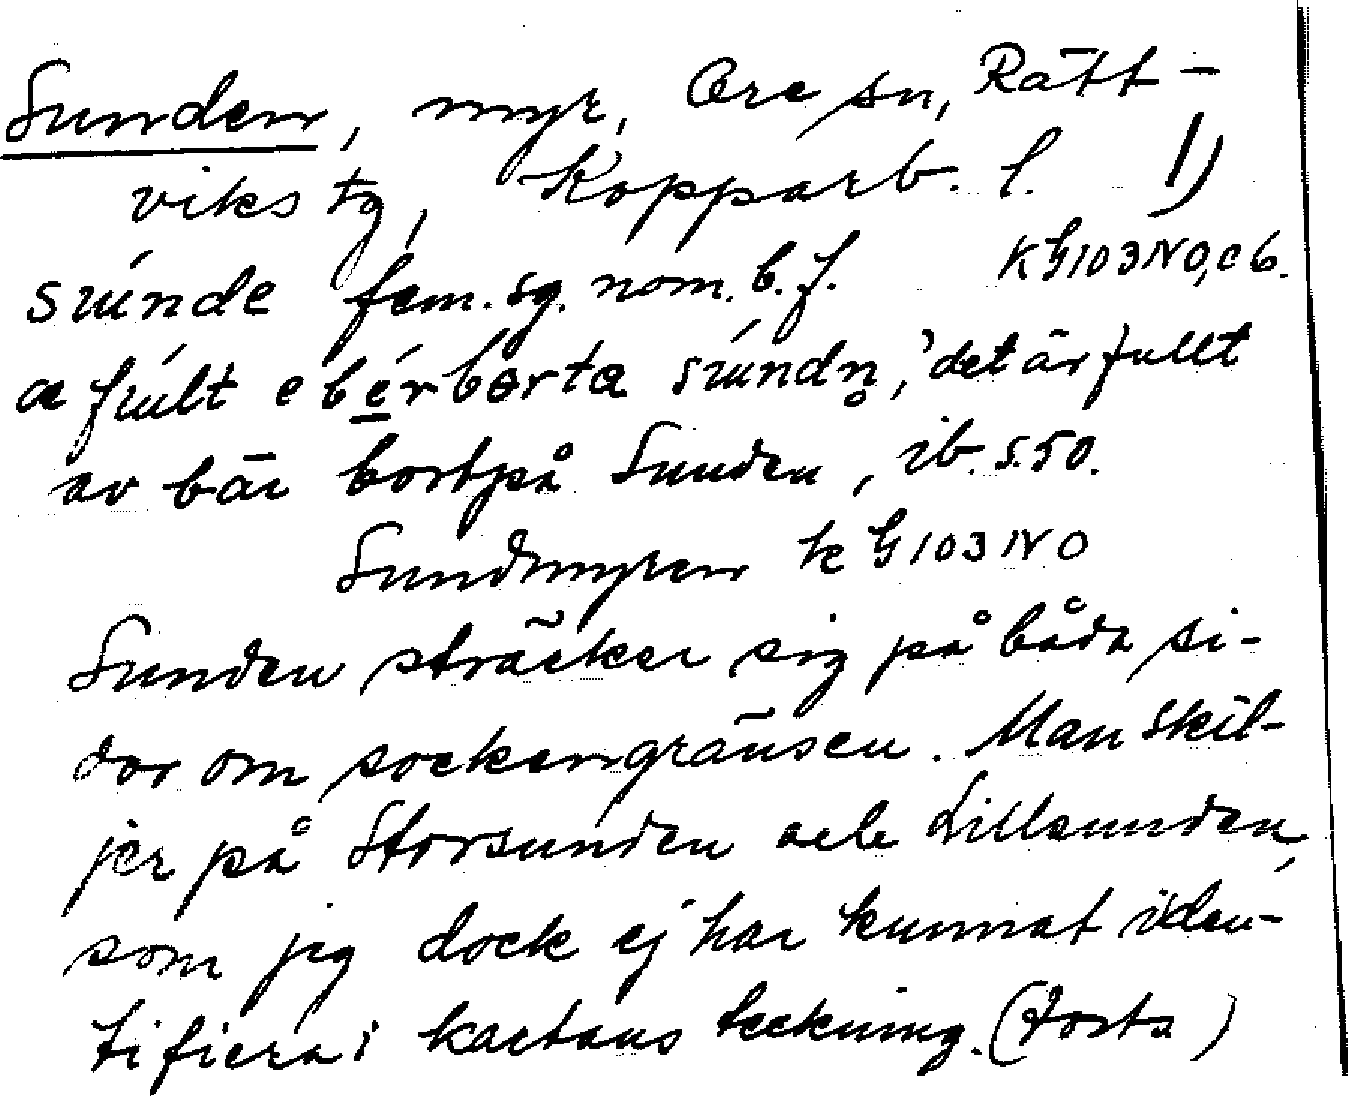 Sunden, myr, Ore sn, Rätt-
viks tg, Kopparb. l. 1)
súnde fem. sg. nom. b. f. KG103NO, c6.
æ fúlt e bér borta súndn̥, 'det är fullt
av bär bortpå Sunden, ib. s. 50.
Sundmyren k G103NO
Sunden sträcker sig på båda si-
dor om sockengränsen. Man skil-
jer på Storsunden och Lillsunden,
som jag dock ej har kunnat iden-
tifiera i kartans teckning. (forts)